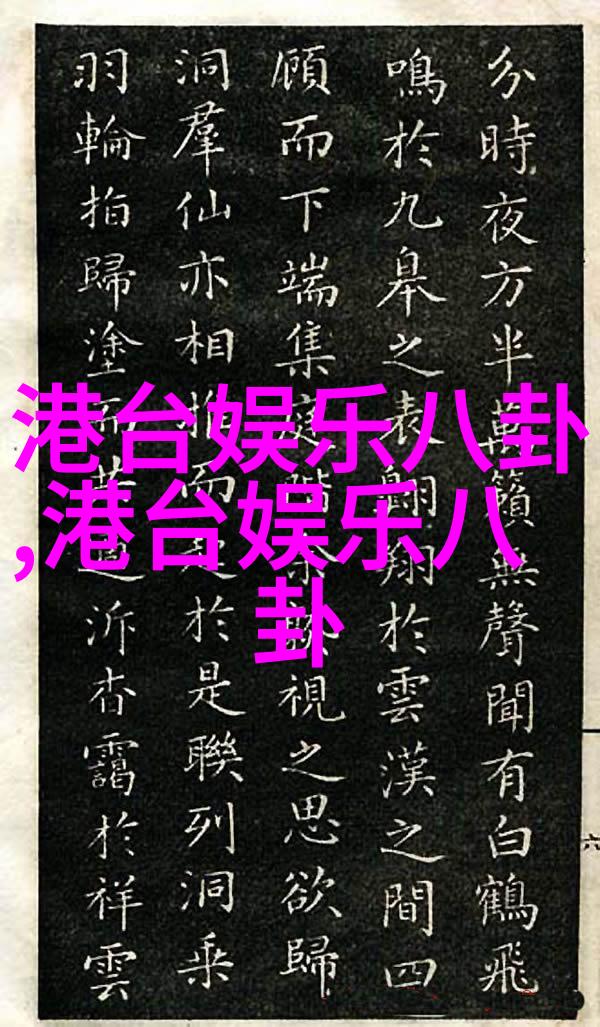 港台娱乐八卦
,港台娱乐八
卦
分時夜方半萬籟無聲聞有白鶴飛
鳴於九皋之表翱翔於雲漢之間四
顧而下端集庭階余視之思欲歸
洞羣仙亦相而於是聯列洞乘
羽輪拍歸塗而泝杳靄於祥雲
六